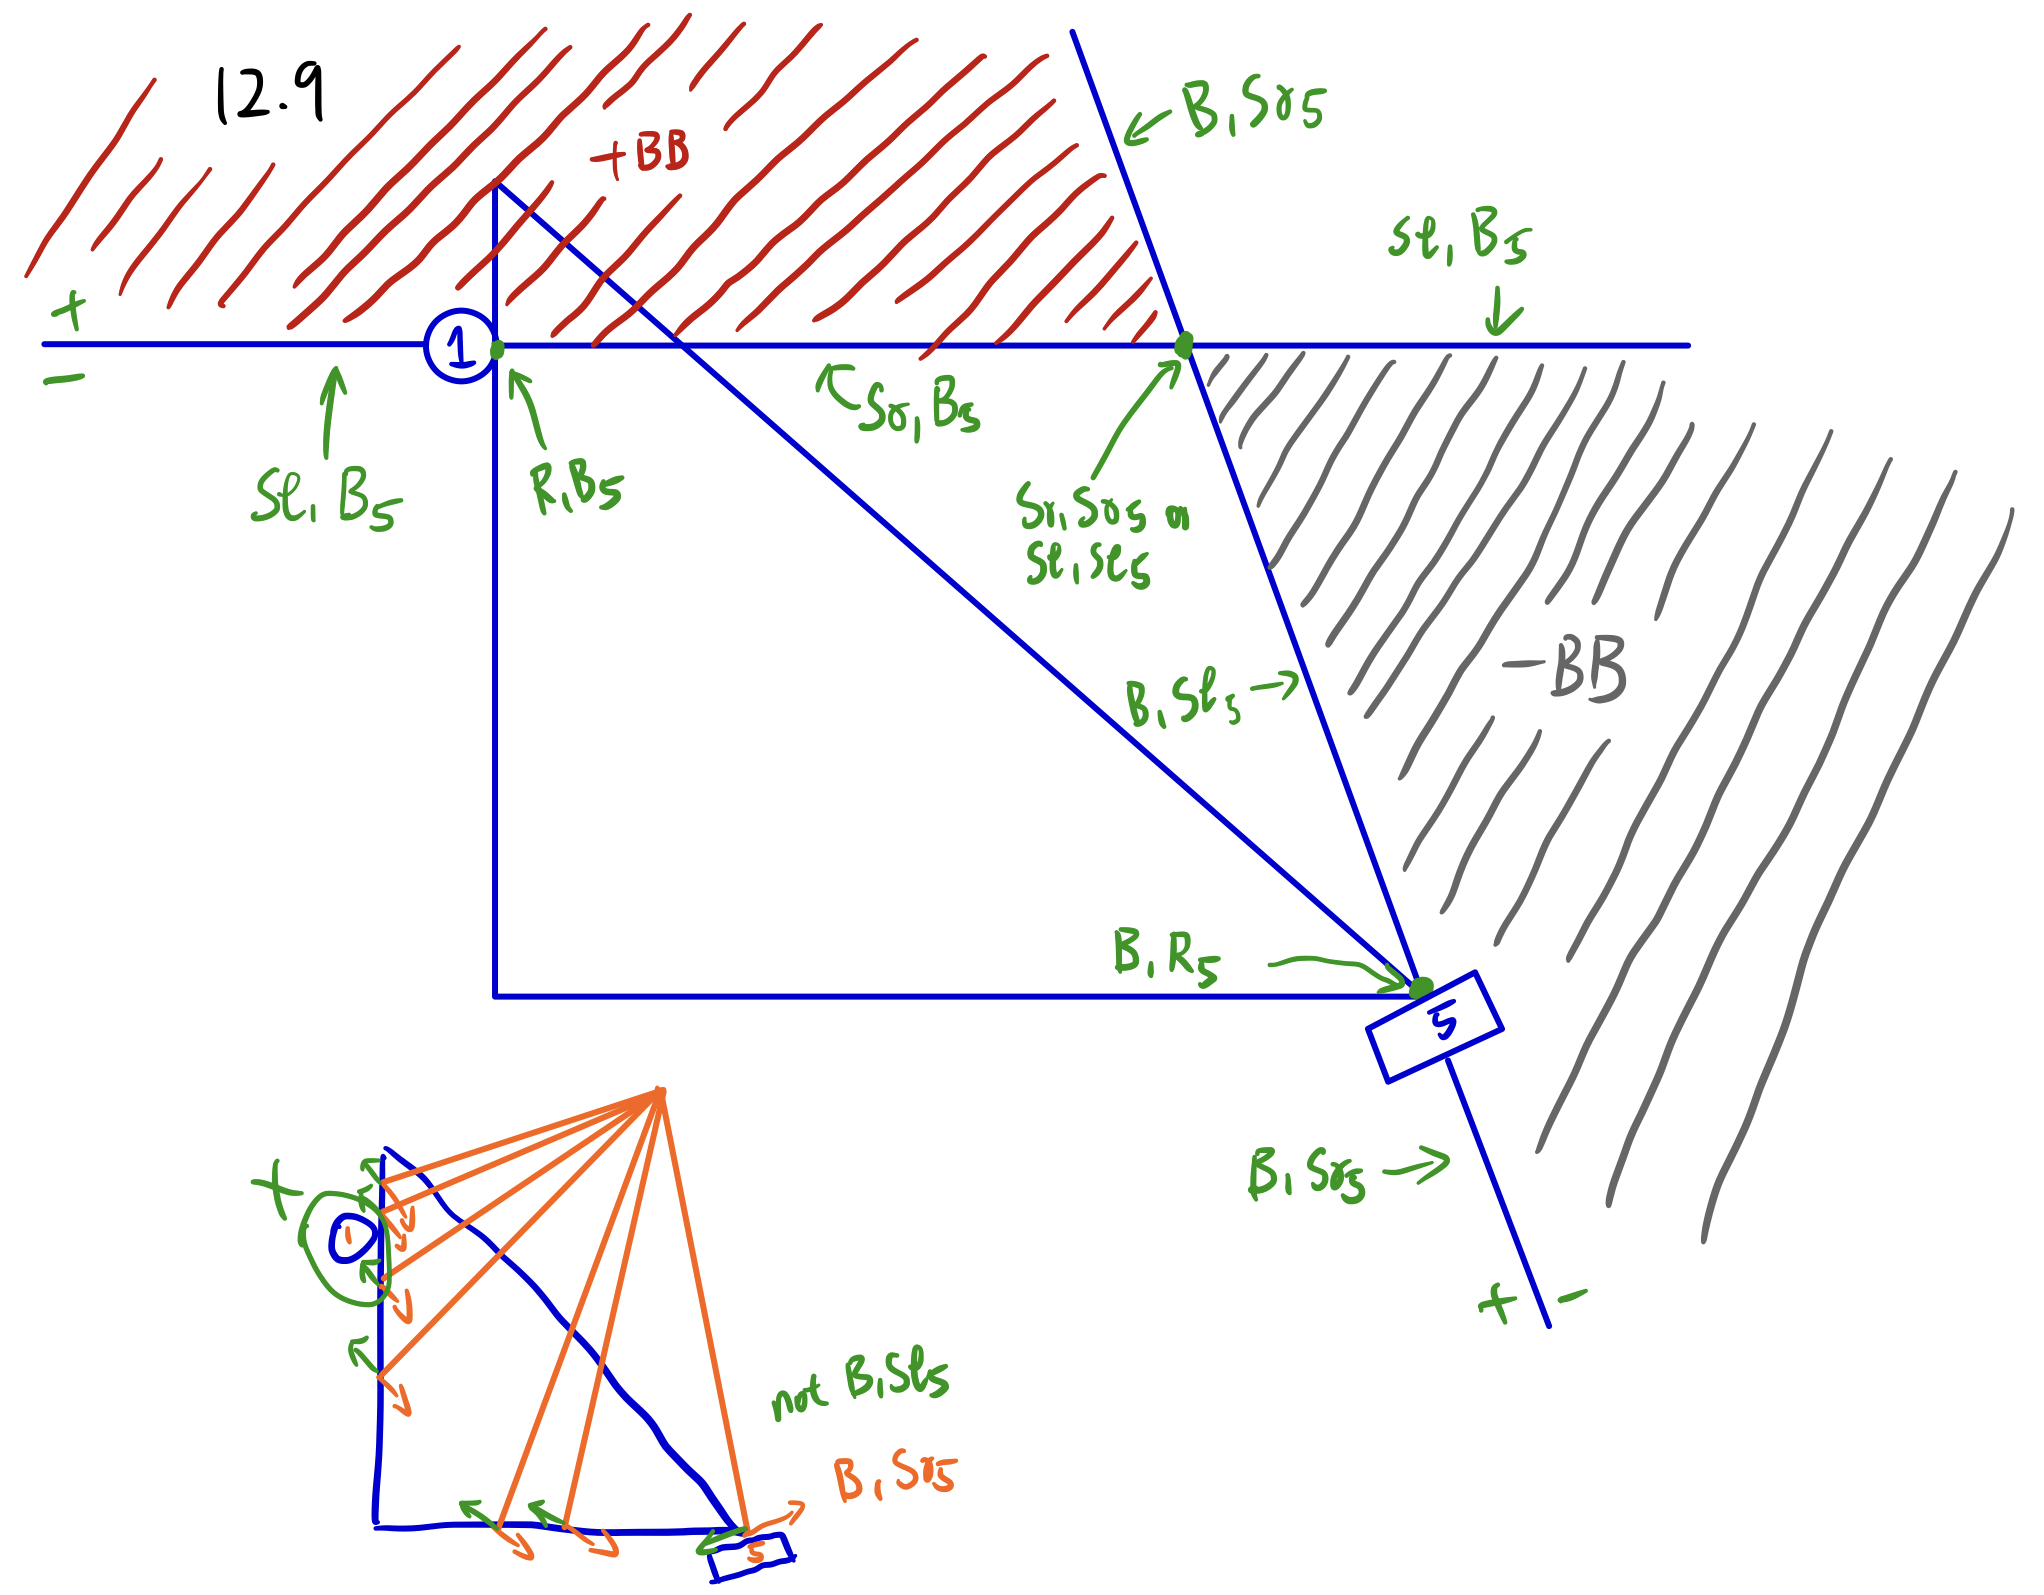 12.9
B, Sr5
+BB
Sl, B5
+
1
−
Sr, B5
Sl, B5
R, B5
Sr, Sr5 or
Sl, Sl5
−BB
B, Sl5
B, R5
5
B, Sr5
+
1
+ -
not B, Sl5
B, Sr5
5